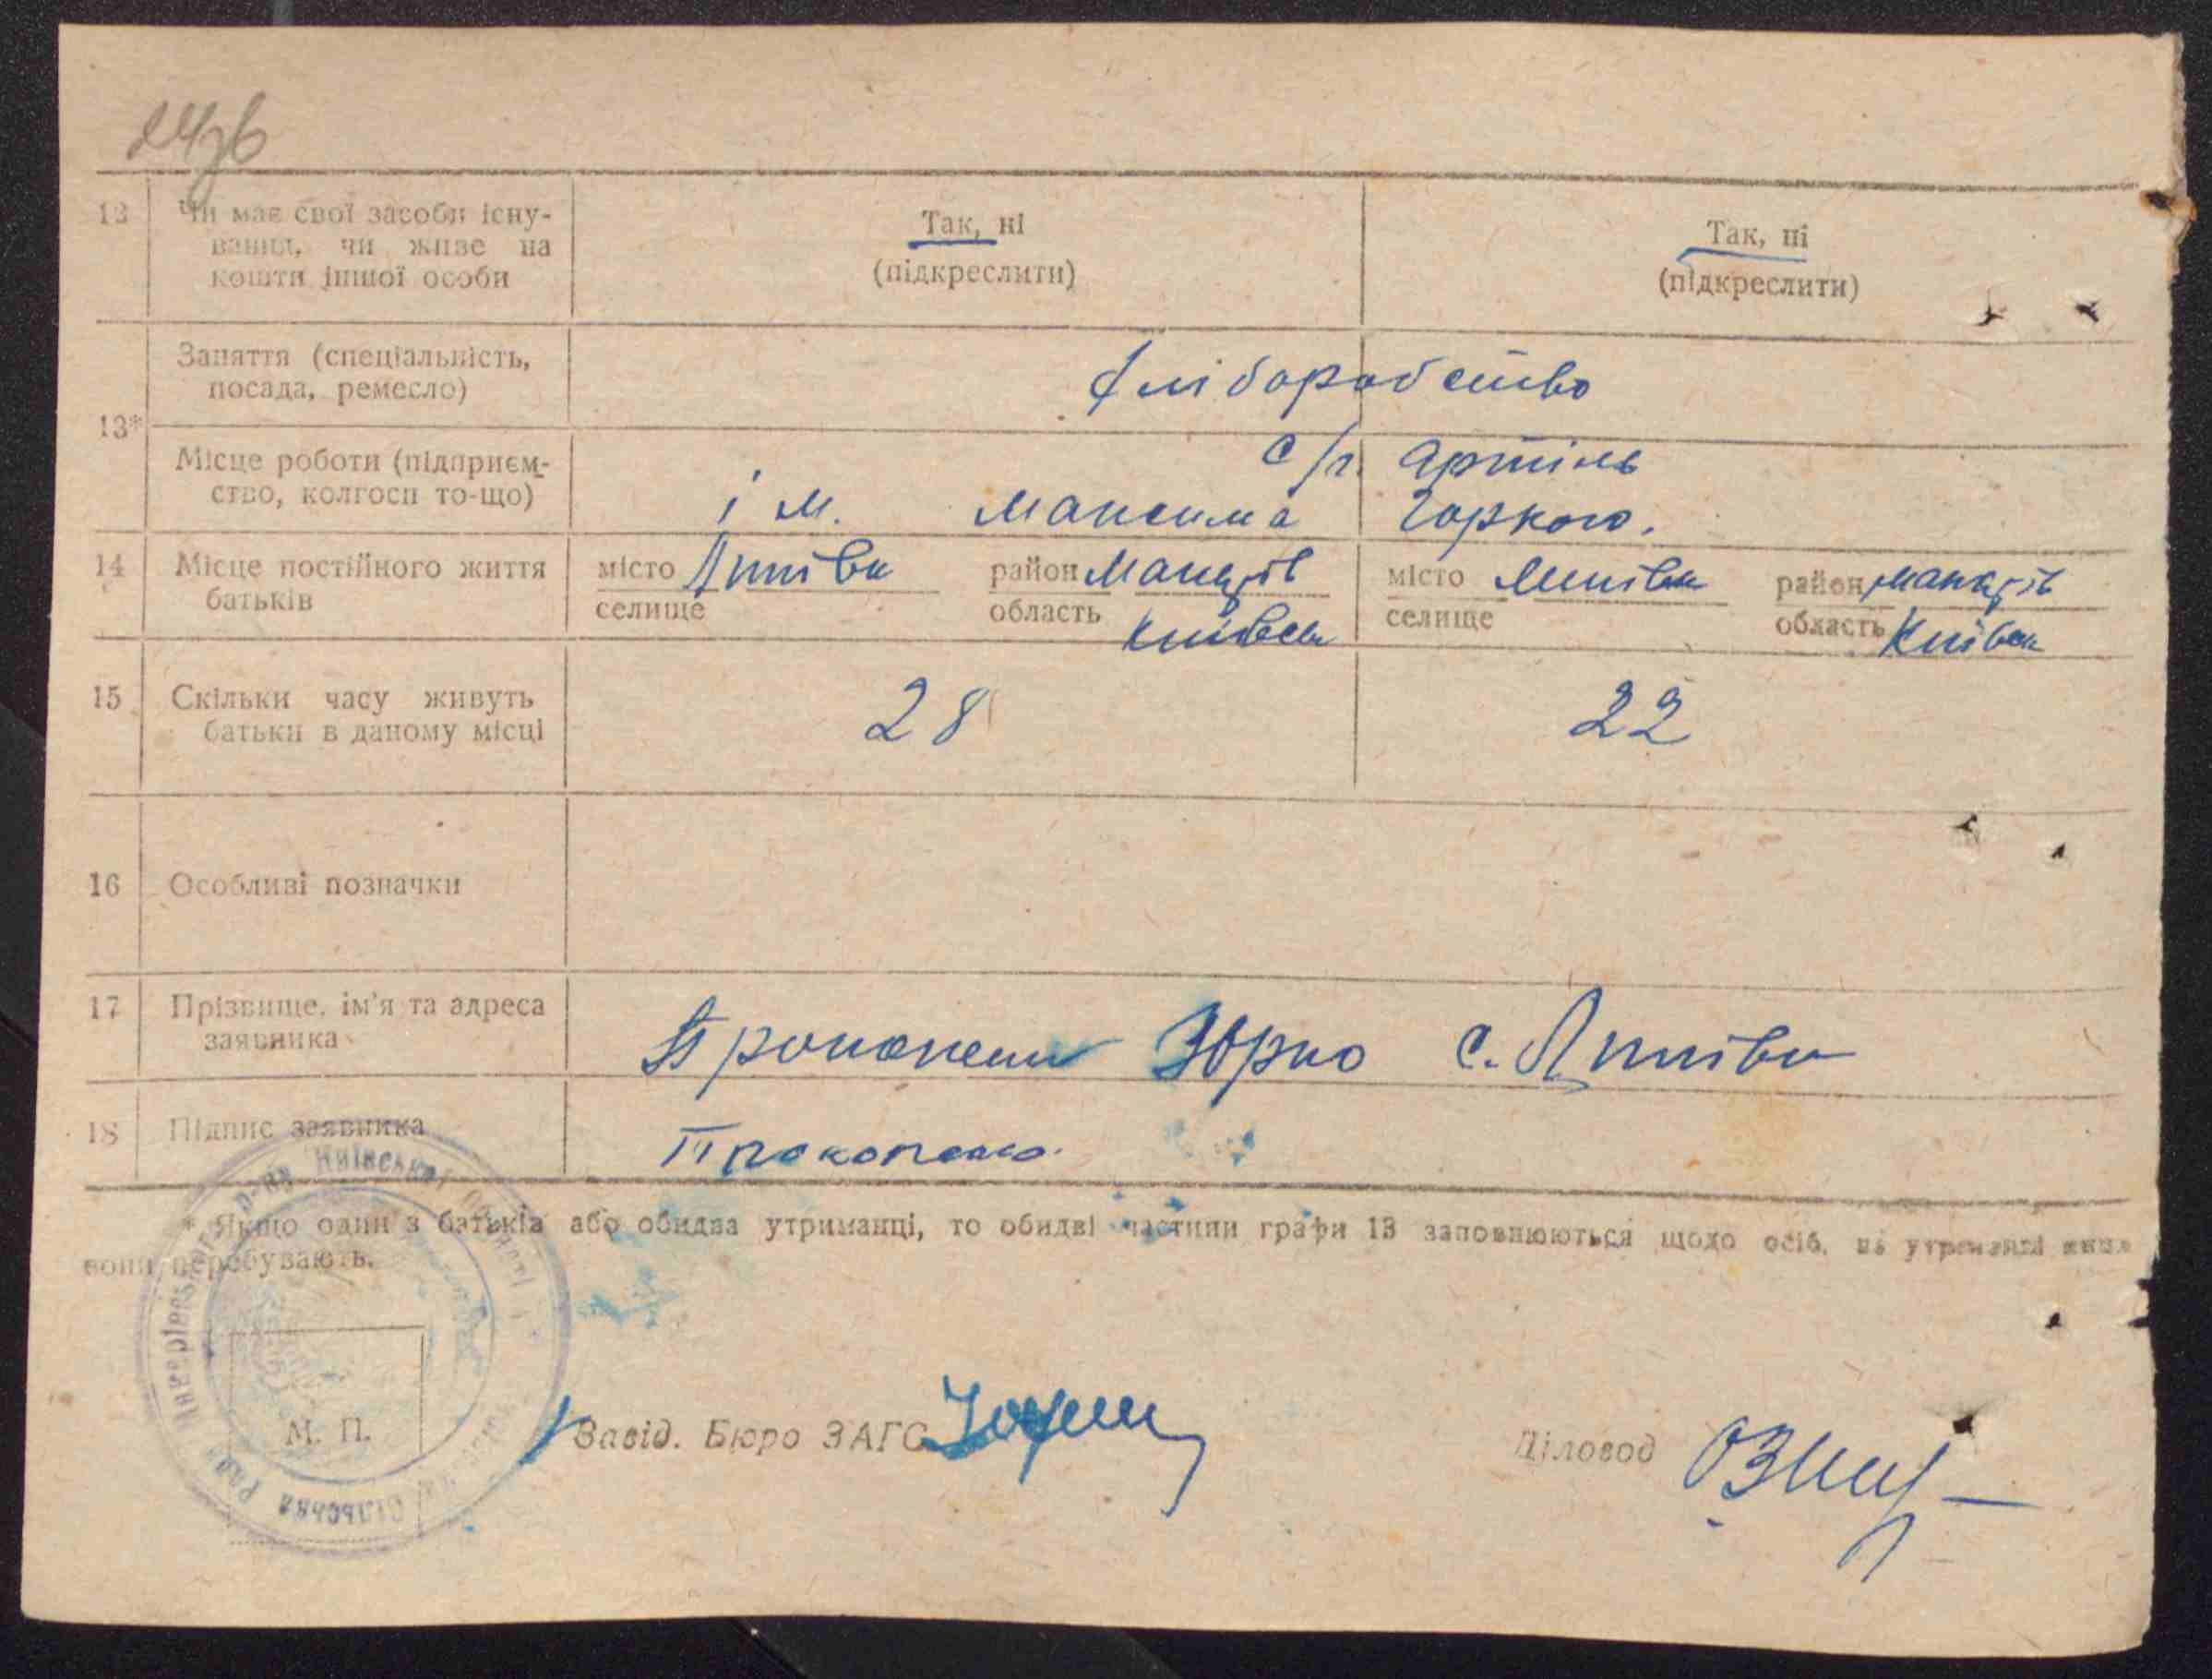 12 Чи має свої засоби існу-
вання, чи живе на
кошти іншої особи
Так, ні
(підкреслити)
Так, ні
(підкреслити)
13*
Заняття (спеціальність,
посада, ремесло)
хліборобство
Місце роботи (підприєм-
ство, колгосп то-що)
с/г. артіль
ім. Максима Горкого.
14 Місце постійного життя
батьків
місто
селище
район Маньків
область Київськ
місто
селище
район Маньків
область Київськ
15 Скільки часу живуть
батьки в даному місці
28
22
16 Особливі позначки
17 Прізвище, ім'я та адреса
заявника
Прокопенко Юрко с.
18 Підпис заявника
Прокопенко
* Якщо один з батьків або обидва утриманці, то обидві частини графи 13 заповнюються щодо осіб, на утриманні яких
вони перебувають.
М. П.
Завід. Бюро ЗАГС
Діловод
р-ну Київської області
сільська Рада